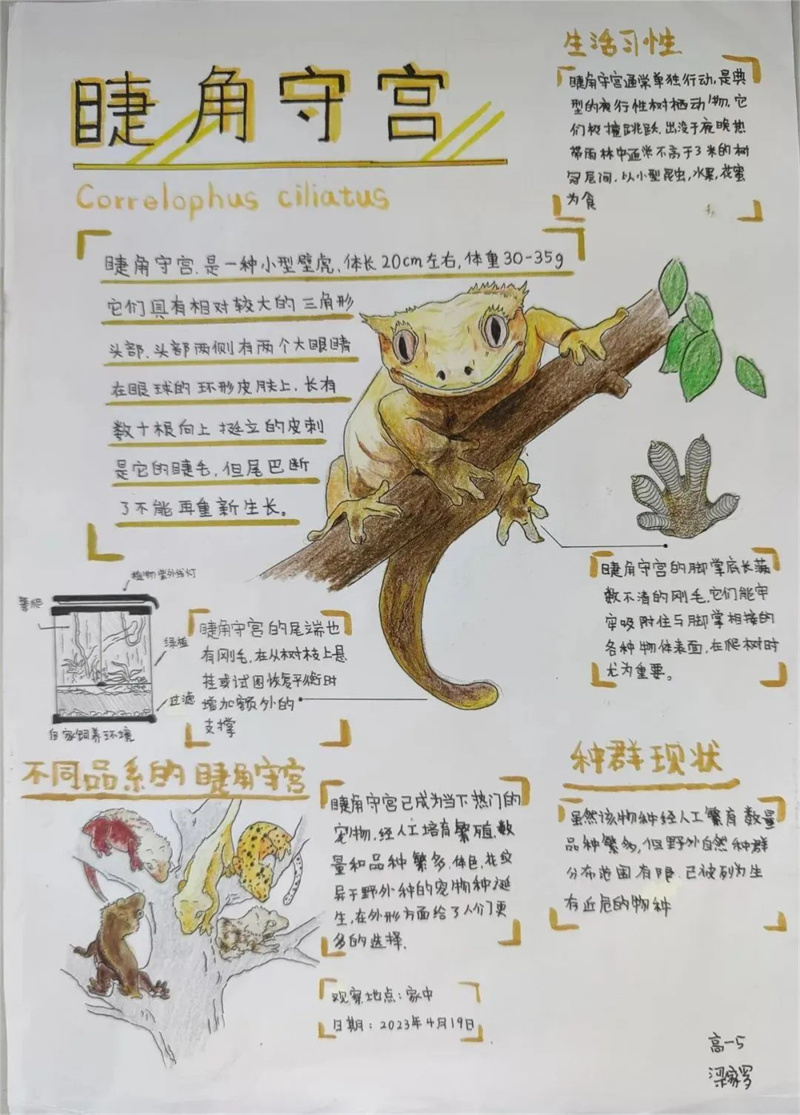 睫角守宫
Correlophus ciliatus
生活习性
睫角守宫通常单独行动,是典
型的夜行性树栖动物,它
们攀撞跳跃,出没于夜晚热
带雨林中通常不高于3米的树
冠层间,以小型昆虫,水果,花蜜
为食
睫角守宫,是一种小型壁虎、体长20cm左右,体重30-35g
它们具有相对较大的三角形
头部,头部两侧有两个大眼睛
在眼球的环形皮肤上,长有
数十根向上挺立的皮刺
是它的睫毛,但尾巴断
了不能再重新生长。
睫角守宫的脚掌底长满
数不清的刚毛,它们能牢
牢吸附住与脚掌相接的
各种物体表面,在爬树时
尤为重要。
植物紫外线灯
绿植
过滤
自家饲养环境
睫角守宫的尾端也
有刚毛,在从树枝上悬
挂或试图恢复平衡时
增加额外的
支撑
不同品系的睫角守宫
睫角守宫已成为当下热门的
宠物,经人工培育繁殖,数
量和品种繁多,体色,花纹
异于野外种的宠物种诞
生,在外形方面给了人们更
多的选择.
种群现状
虽然该物种经人工繁育数量
品种繁多,但野外自然种群
分布范围有限,已被列为生
有近危的物种
观察地点:家中
日期:2023年4月19日
高一5